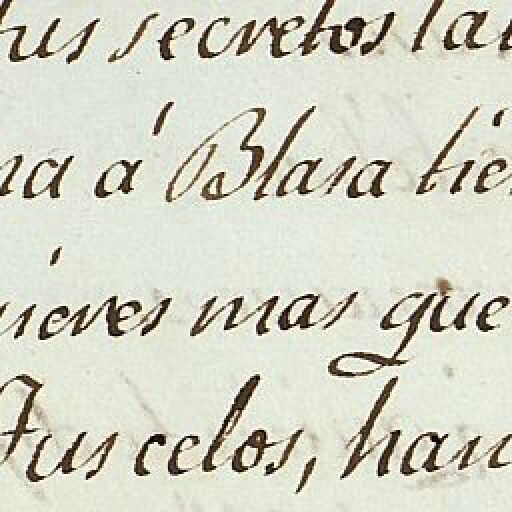 tus secretos la
na á Blasa tie
uieres mas que
Tus celos, han